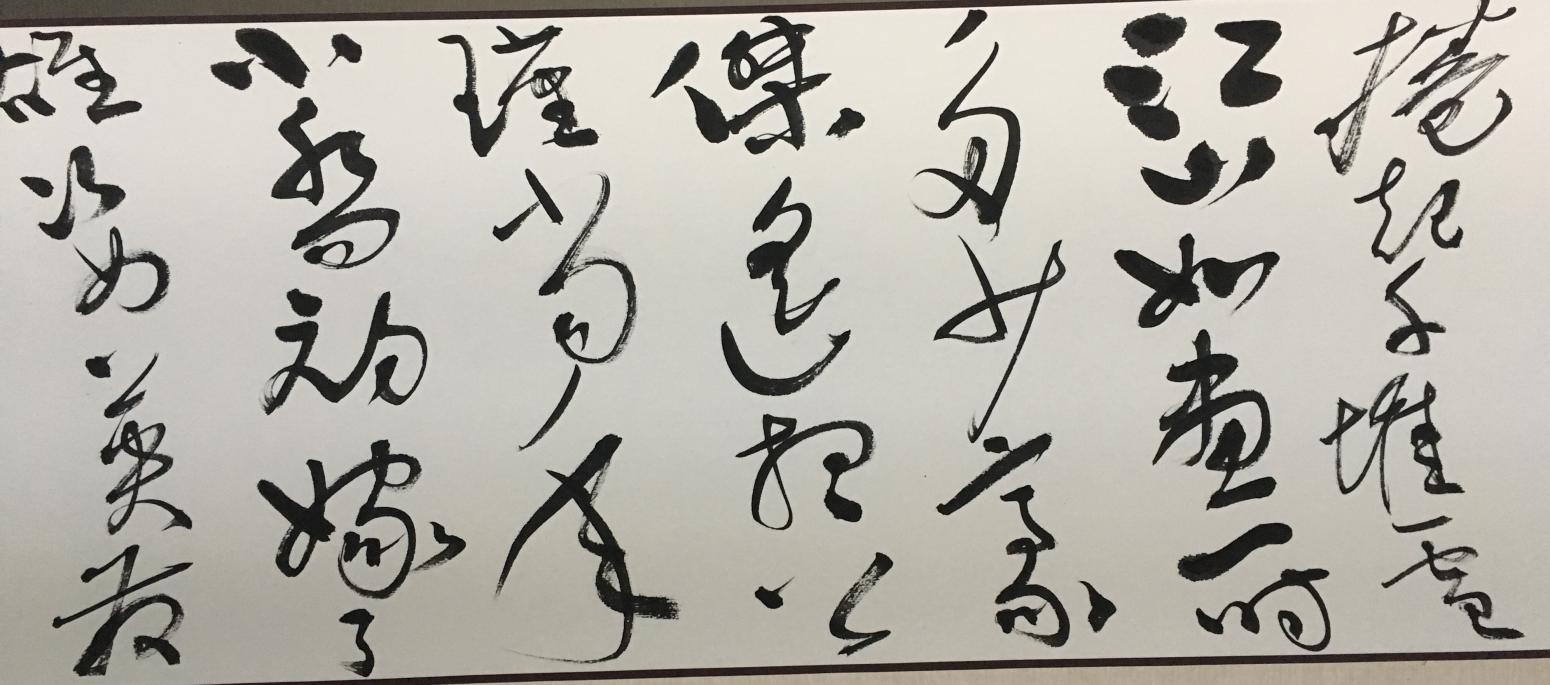 捲起千堆雪
江山如畫一時
多少豪
傑遙想公
瑾當年
小喬初嫁了
雄姿英發